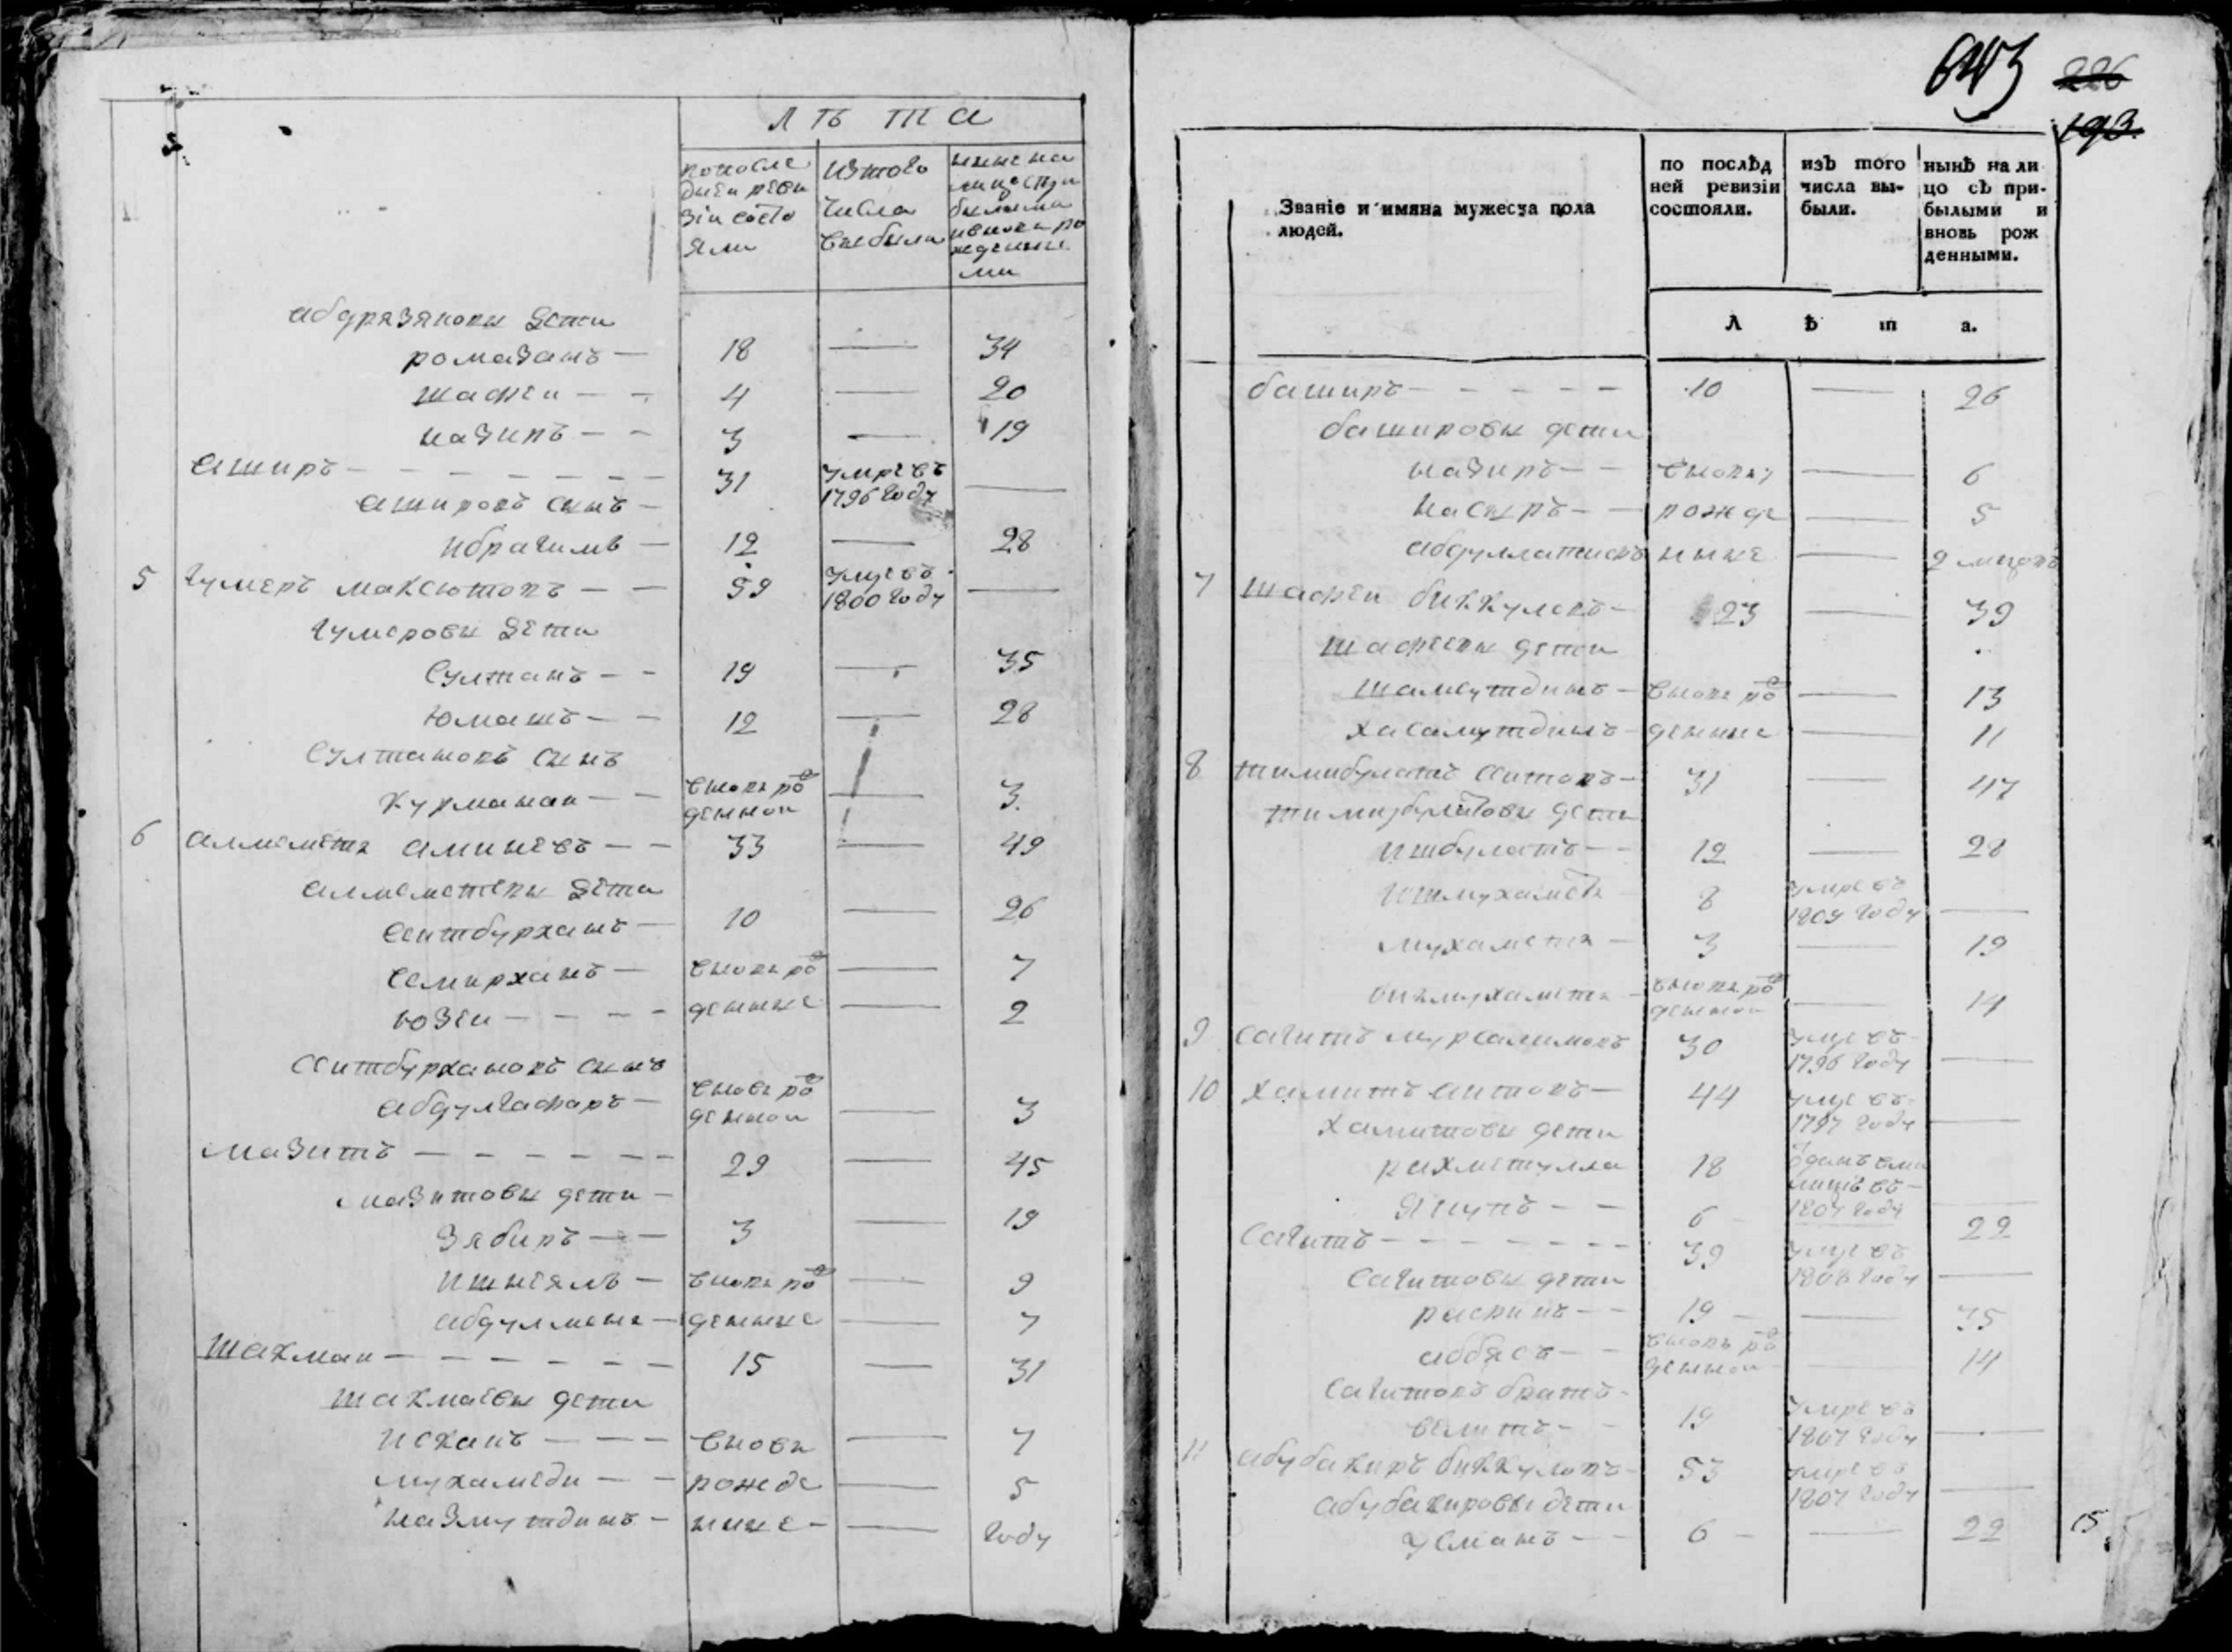 лѢта
по после
дней реви
зіи состо
яли
изтого
числа
выбыли
ныне на
лицо с при
былыми
и вновь ро
жденны
ми
абдрязяковы дети
ромазанъ — 18 — 34
шафеи — — 4 — 20
назипъ — — 3 — 19
аширъ — 31 умре въ —
1796 году
ашировъ сынъ —
ибрагимъ — 12 — 28
5 гумеръ максютовъ — — 59 умре въ —
1800 году
гумеровы дети
султанъ — — 19 — 35
юмашъ — — 12 — 28
султановъ сынъ
курманаи — — вновь ро — 3
жденной
6 алмаметь аминевъ — — 33 — 49
алмаметевы дети
сеитбурханъ — 10 — 26
семирханъ — вновь ро — 7
юзеи — — — — жденные — 2
сеитбурхановъ сынъ
абдулгафаръ — вновь ро — 3
жденной
мазитъ — — — — — — 29 — 45
мазитовы дети —
зябиръ — — 3 — 19
ишнеязъ — вновь ро — 9
абдулмень — жденные — 7
шахмаи — — — — — — 15 — 31
шахмаевы дети
исканъ — — — вновь — 7
мухамеди — — рожде — 5
назмутдинъ — нные — — году
643 226
193.
Званіе и имяна мужеска пола
людей.
по послѣд
ней ревизіи
состояли.
изъ того
числа вы-
были.
нынѣ на ли
цо съ при-
былыми и
вновь рож
денными.
Л ѣ т а.
баширъ — — — — — 10 — 26
башировы дети
назиръ — — вновь — 6
насыръ — — рожде — 5
абдуллатифъ нные — 2 мцовъ
7 шафеи биккуловъ — 23 — 39
шафеевы дети
шамсутдинъ — вновь ро — 13
хасамутдинъ — жденные — 11
8 тимибулатъ сеитовъ — 31 — 47
тимибулатовы дети
ишбулатъ — — 12 — 28
ишмухаметь 8 умре въ —
1809 году
мухаметь — 3 — 19
бикмухаметь — вновь ро — 14
жденной
9 сагитъ мурсалимовъ 30 умре въ —
1796 году
10 хамитъ сеитовъ — 44 умре въ —
1797 году
хамитовы дети
рахметулла 18
1807 году
ягупъ — — 6 22
сагитъ — — — — — — — 39 умре въ
1808 году —
сагитовы дети
рафикъ — — 19 — — 35
аббясъ — — вновь ро — 14
жденной
сагитовъ братъ —
велитъ — — 19 умре въ
1807 году —
11 абубакиръ биккуловъ — 53 умре въ
1807 году —
абубакировы дети
усманъ — — 6 — — 22
15